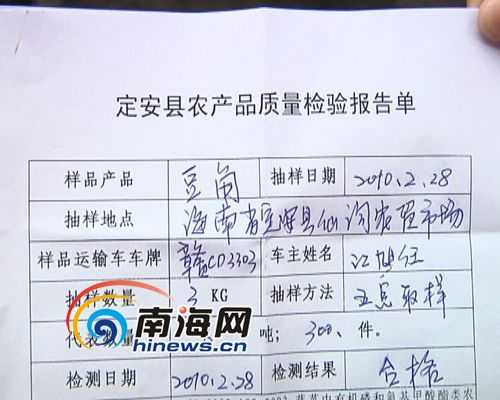 定安县农产品质量检验报告单
样品产品 豆角 抽样日期 2010.2.28
抽样地点 海南省定安县仙沟农贸市场
样品运输车车牌 赣CD3303 车主姓名
抽样数量 3 KG 抽样方法 五点取样
代表数量 吨; 300、件。
检测日期 2010.2.28 检测结果 合格
南海网
hinews.cn